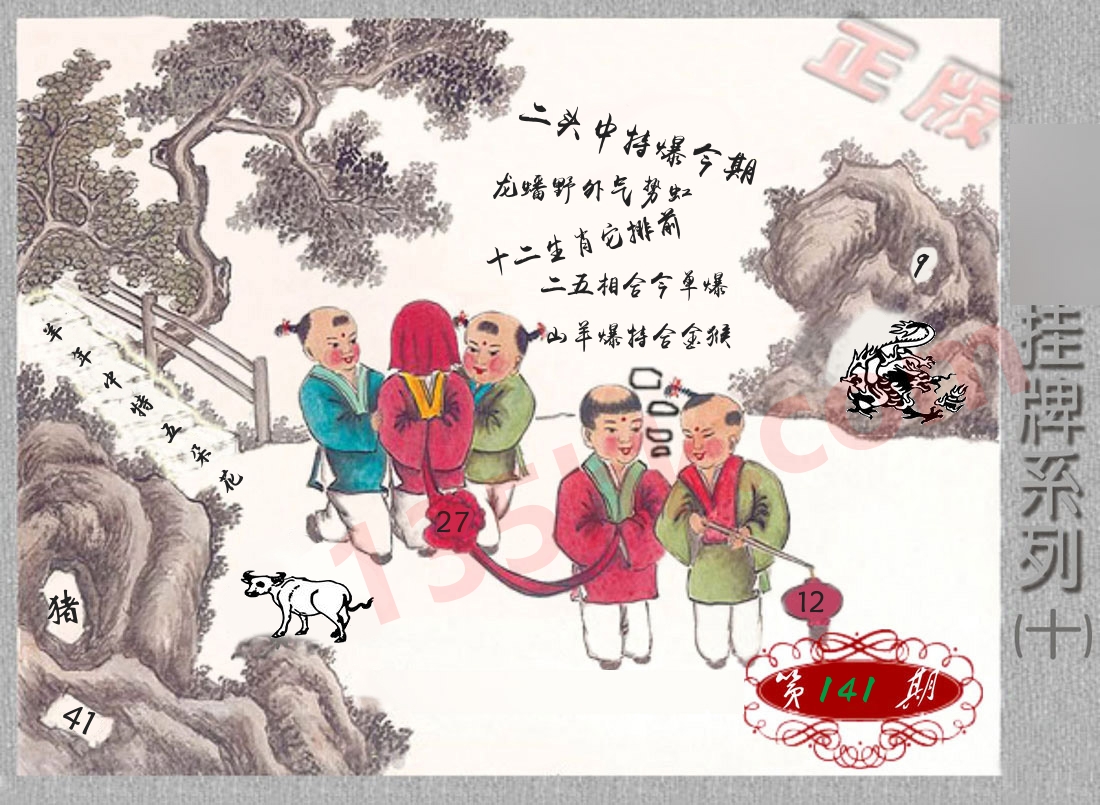 正版
二头中特爆今期
龙蟠野外气势虹
十二生肖它排前
二五相合今单爆
山羊爆特合金猴
羊年中特五朵花
9
27
12
猪
41
第141期
挂牌系列(十)